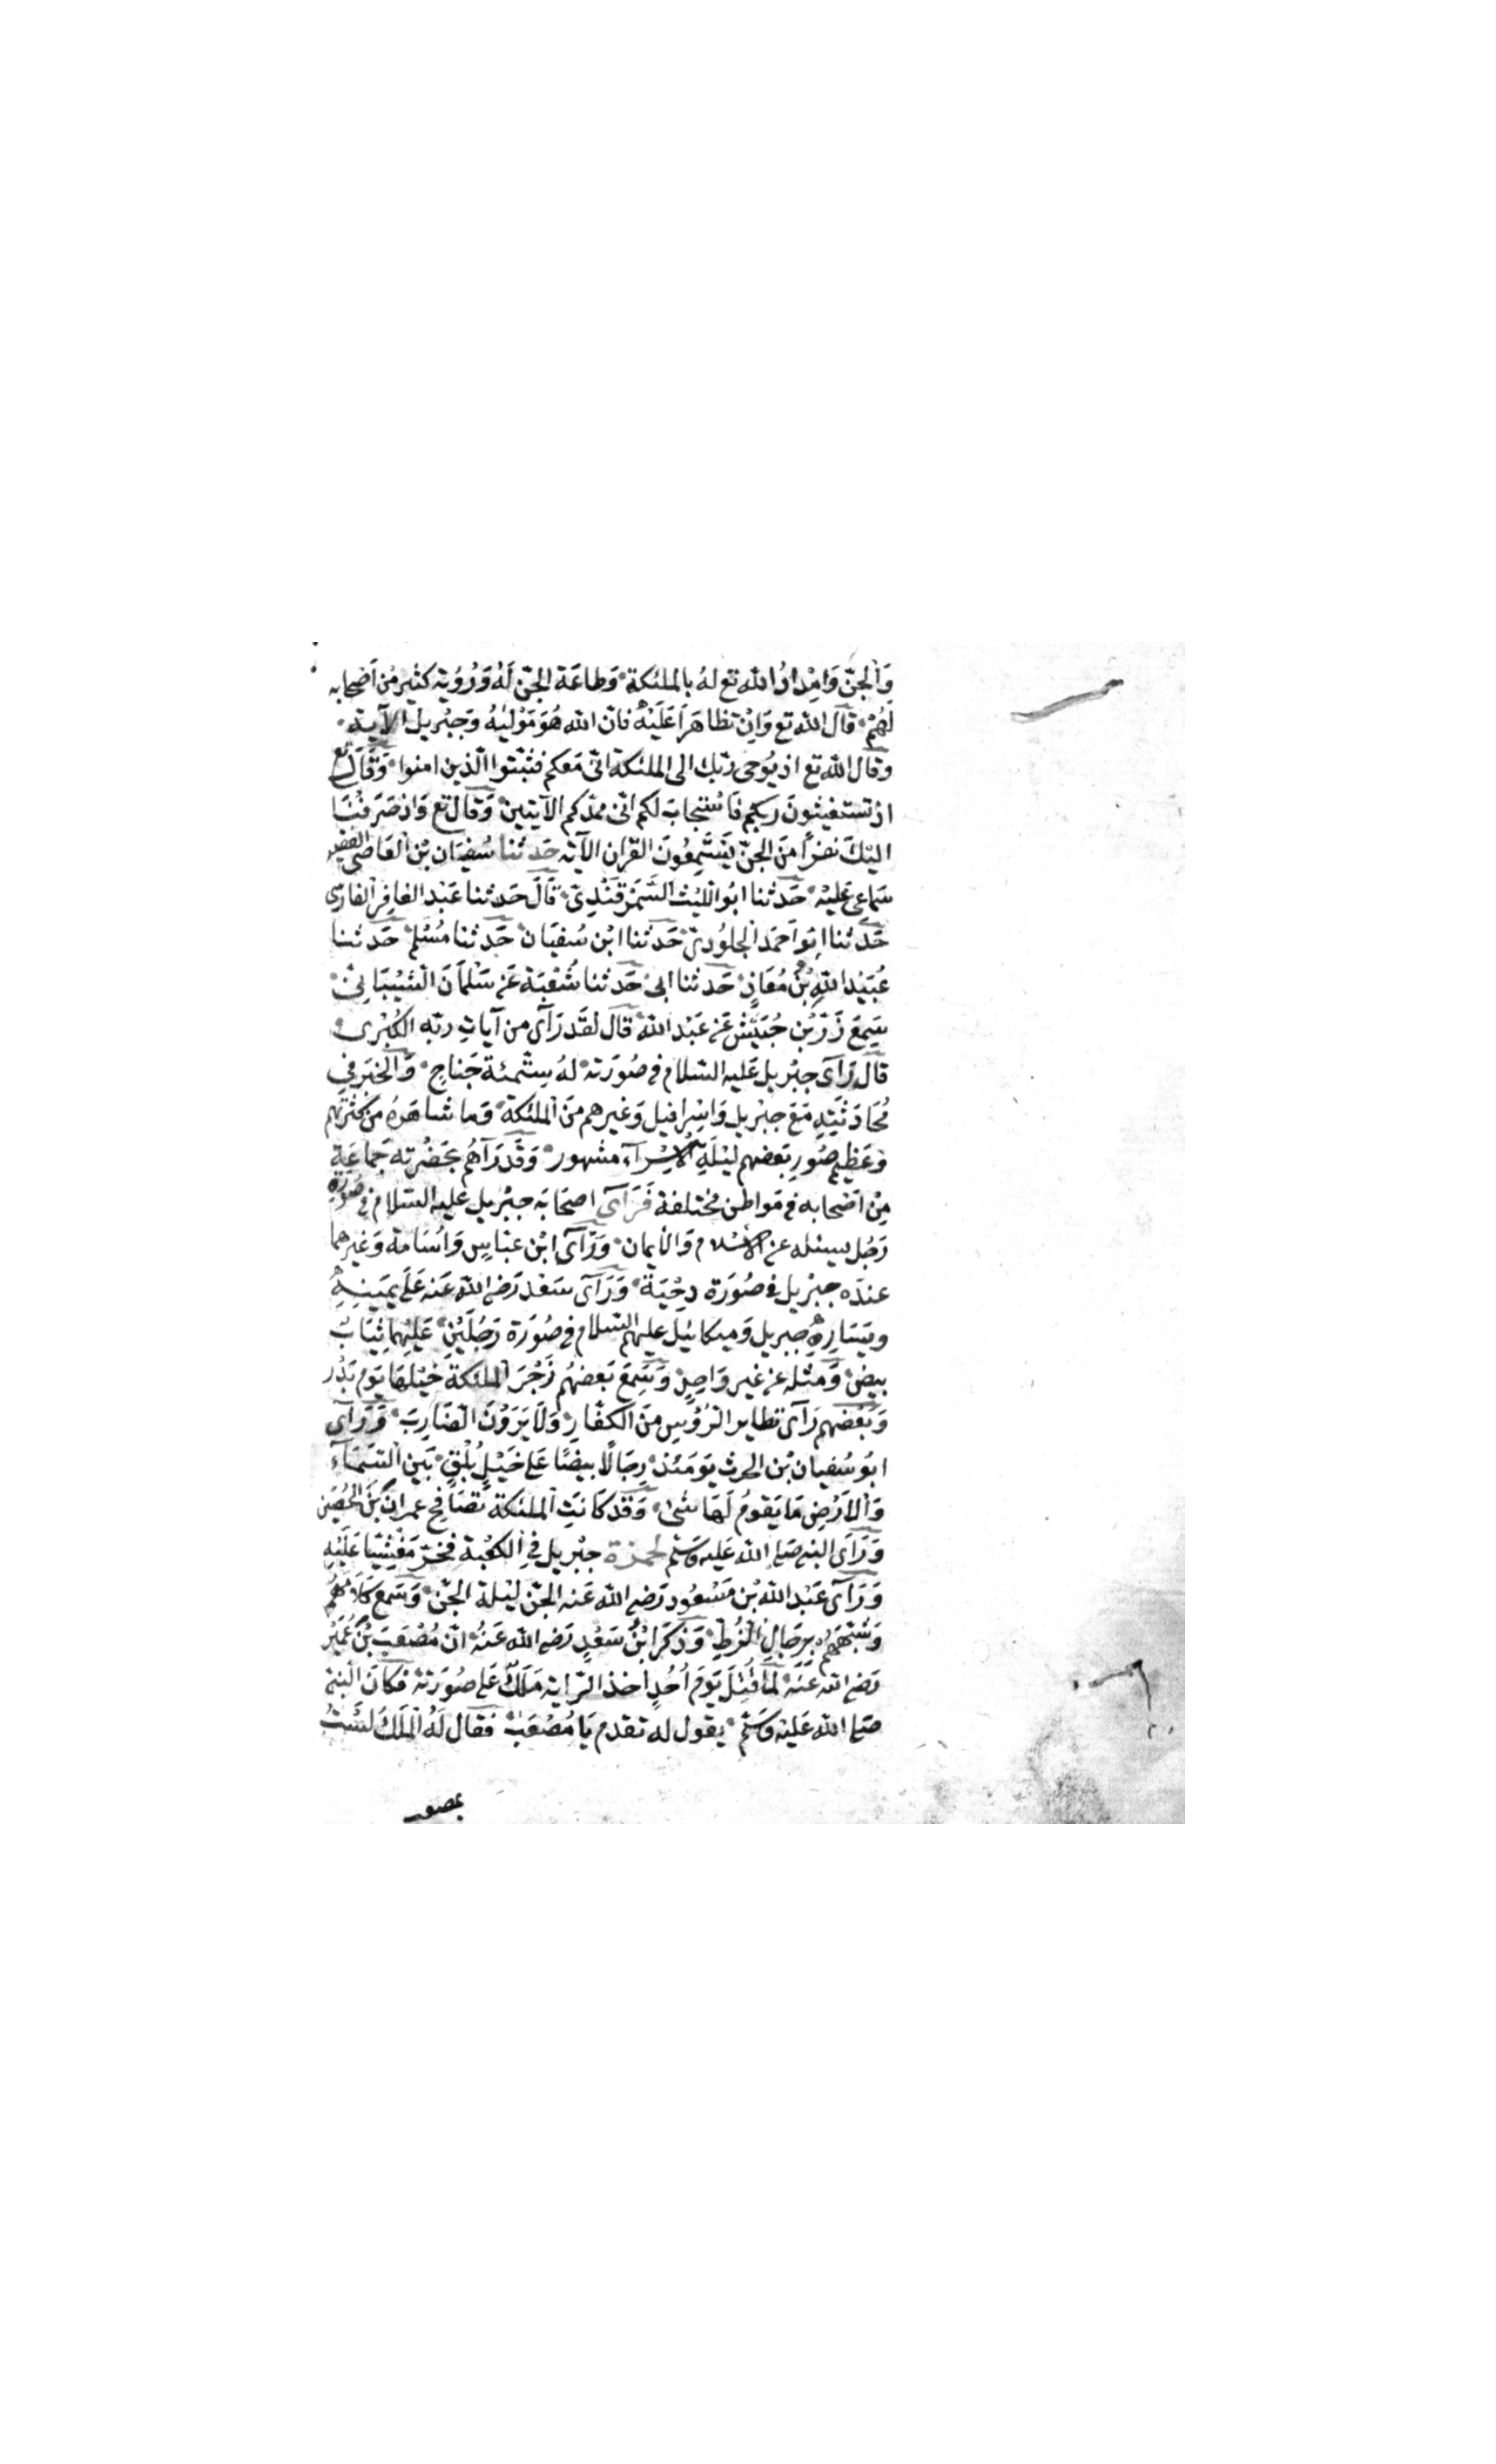 وَالجنّ وَامْدادُ الله تع لهُ بالملئكة وَطاعَة الجنّ لَهُ وَرُؤيَة كثير مِن اَصْحابه
لَهُمْ قال الله تع وَاِنْ تظاهرَا عَلَيْهِ فانّ الله هُوَ مَوْليٰهُ وَجبْريل الآية
وقال الله تع اذ يُوحى ربّك الى الملئكة انّى مَعكم فثبّتوا الّذين امنوا وَقال تع
اذ تستغيثونَ ربكم فَاسْتجابَ لكم انّى ممدّكم الآيتين وَقال تع وَاذ صَرَفْنَا
اليْكَ نفرًا مِنَ الجنّ يَسْتَمِعُونَ القرآن الآية حَدثنا سُفيَان بْن العَاصى الفقيه
سَماعى عَليْه حَدثنا ابُو الليْث السَّمَرْقَنْدِى قَالَ حَدثنا عَبْد الغافِر الفارسى
حَدثنا ابَو اَحمَد الجلُودىّ حَدثنا ابْن سُفيَان حَدثنا مُسْلم حَدثنا
عُبَيْد اللهِ بْن مُعَاذٍ حَدثنا ابى حَدثنا شُعْبَة عَن سَلْمَانَ الشيْبَانِىّ
سَمِعَ زَرَّ بْن حُبَيْش عَن عَبْد الله قال لقد رَآى من آيات ربّه الكُبْرى
قال رَآى جبْريل عَليه السّلام فى صُورَته لهُ ستّمئة جَناحٍ وَالخبَر فى
مُحَادَثَتِهِ مَعَ جبْريل وَاِسْرافيل وَغيرهم مِنَ الملئكة وَما شاهَدهُ من كثرتهم
وَعَظيم صُوَر بَعضهم ليْلَة الاِسْرآء مشهور وَقَد رَآهُم بحَضْرته جَماعَة
مِنْ اَصْحابه فى مَواطن مختلفة فَرَآى اصحَابه جبْريل عليه السّلام فى صُورَة
رَجُل يسئله عن الاِسْلام وَالايمان وَرَآى ابْن عَبّاسٍ وَاُسَامَة وَغيرهما
عندَه جبْريل فى صُورَة دِحْيَة وَرَآى سَعْد رَضى الله عَنه عَلىٰ يَمينِهِ
ويَسَارِهِ جبريل وَميكائيل عليهم السّلام فى صُورَة رَجُلَيْنِ عَليْهما ثيَابٌ
بيض وَمثله عن غير وَاحِدٍ وَسَمِعَ بَعضهُم زَجْرَ الملئكة خيْلهَا يَوم بَدْر
وَبَعْضهم رَآى تطاير الرُؤُس مِنَ الكفّار وَلَا يَرَوْنَ الضّارِبَ وَرَآى
ابَو سُفيان بْن الحرث يَومَئذ رِجَالًا بيضًا عَلى خَيْلٍ بُلْقٍ بَين السَّمَآء
وَالارْضِ مَا يَقومُ لَها شَئ وَقَد كَانَتِ الملئكة تصَافح عمران بْن الحُصَيْن
وَرَآى النبى صَلى الله عَليه وَسَلم لحمزة جبْريل فى الكعْبة فخرّ مَغْشيّا عَليْهِ
وَرَآى عَبْد الله بْن مَسْعُود رَضى الله عَنه الجنّ ليْلة الجنّ وَسَمع كَلامَهُم
وَشبّهَهُم برجَالِ الزُّطِّ وَذكَرَ ابْنُ سَعْدٍ رَضى الله عَنْهُ انّ مُصْعَب بْنَ عُمَيْر
رَضى الله عَنْهُ لمّا قُتِلَ يَوم اُحُدٍ اخذ الرّاية مَلَكٌ عَلى صُورَتهِ فكانَ النبىّ
صَلى الله عَليْه وَسَلم يقول له تقدم يَا مُصْعَبُ فقال لَهُ الملَكُ لَسْتُ
بمصعب